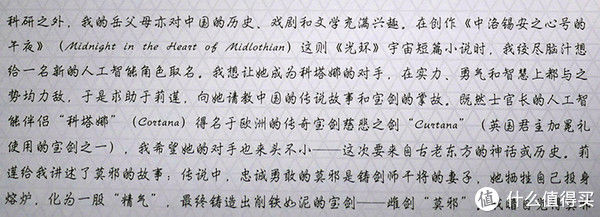 科研之外，我的岳父母亦对中国的历史、戏剧和文学充满兴趣。在创作《中洛锡安之心号的
午夜》（Midnight in the Heart of Midlothian）这则《光环》宇宙短篇小说时，我绞尽脑汁想
给一名新的人工智能角色取名。我想让她成为科塔娜的对手，在实力、勇气和智慧上都与之
势均力敌，于是求助于莉莲，向她请教中国的传说故事和宝剑的掌故。既然士官长的人工智
能伴侣“科塔娜”（Cortana）得名于欧洲的传奇宝剑慈悲之剑“Curtana”（英国君主加冕礼
使用的宝剑之一），我希望她的对手也来头不小——这次要来自古老东方的神话或历史。莉
莲给我讲述了莫邪的故事：传说中，忠诚勇敢的莫邪是铸剑师干将的妻子，她牺牲自己投身
熔炉，化为一股“精气”，最终铸造出削铁如泥的宝剑——雌剑“莫邪”
值 什么值得买